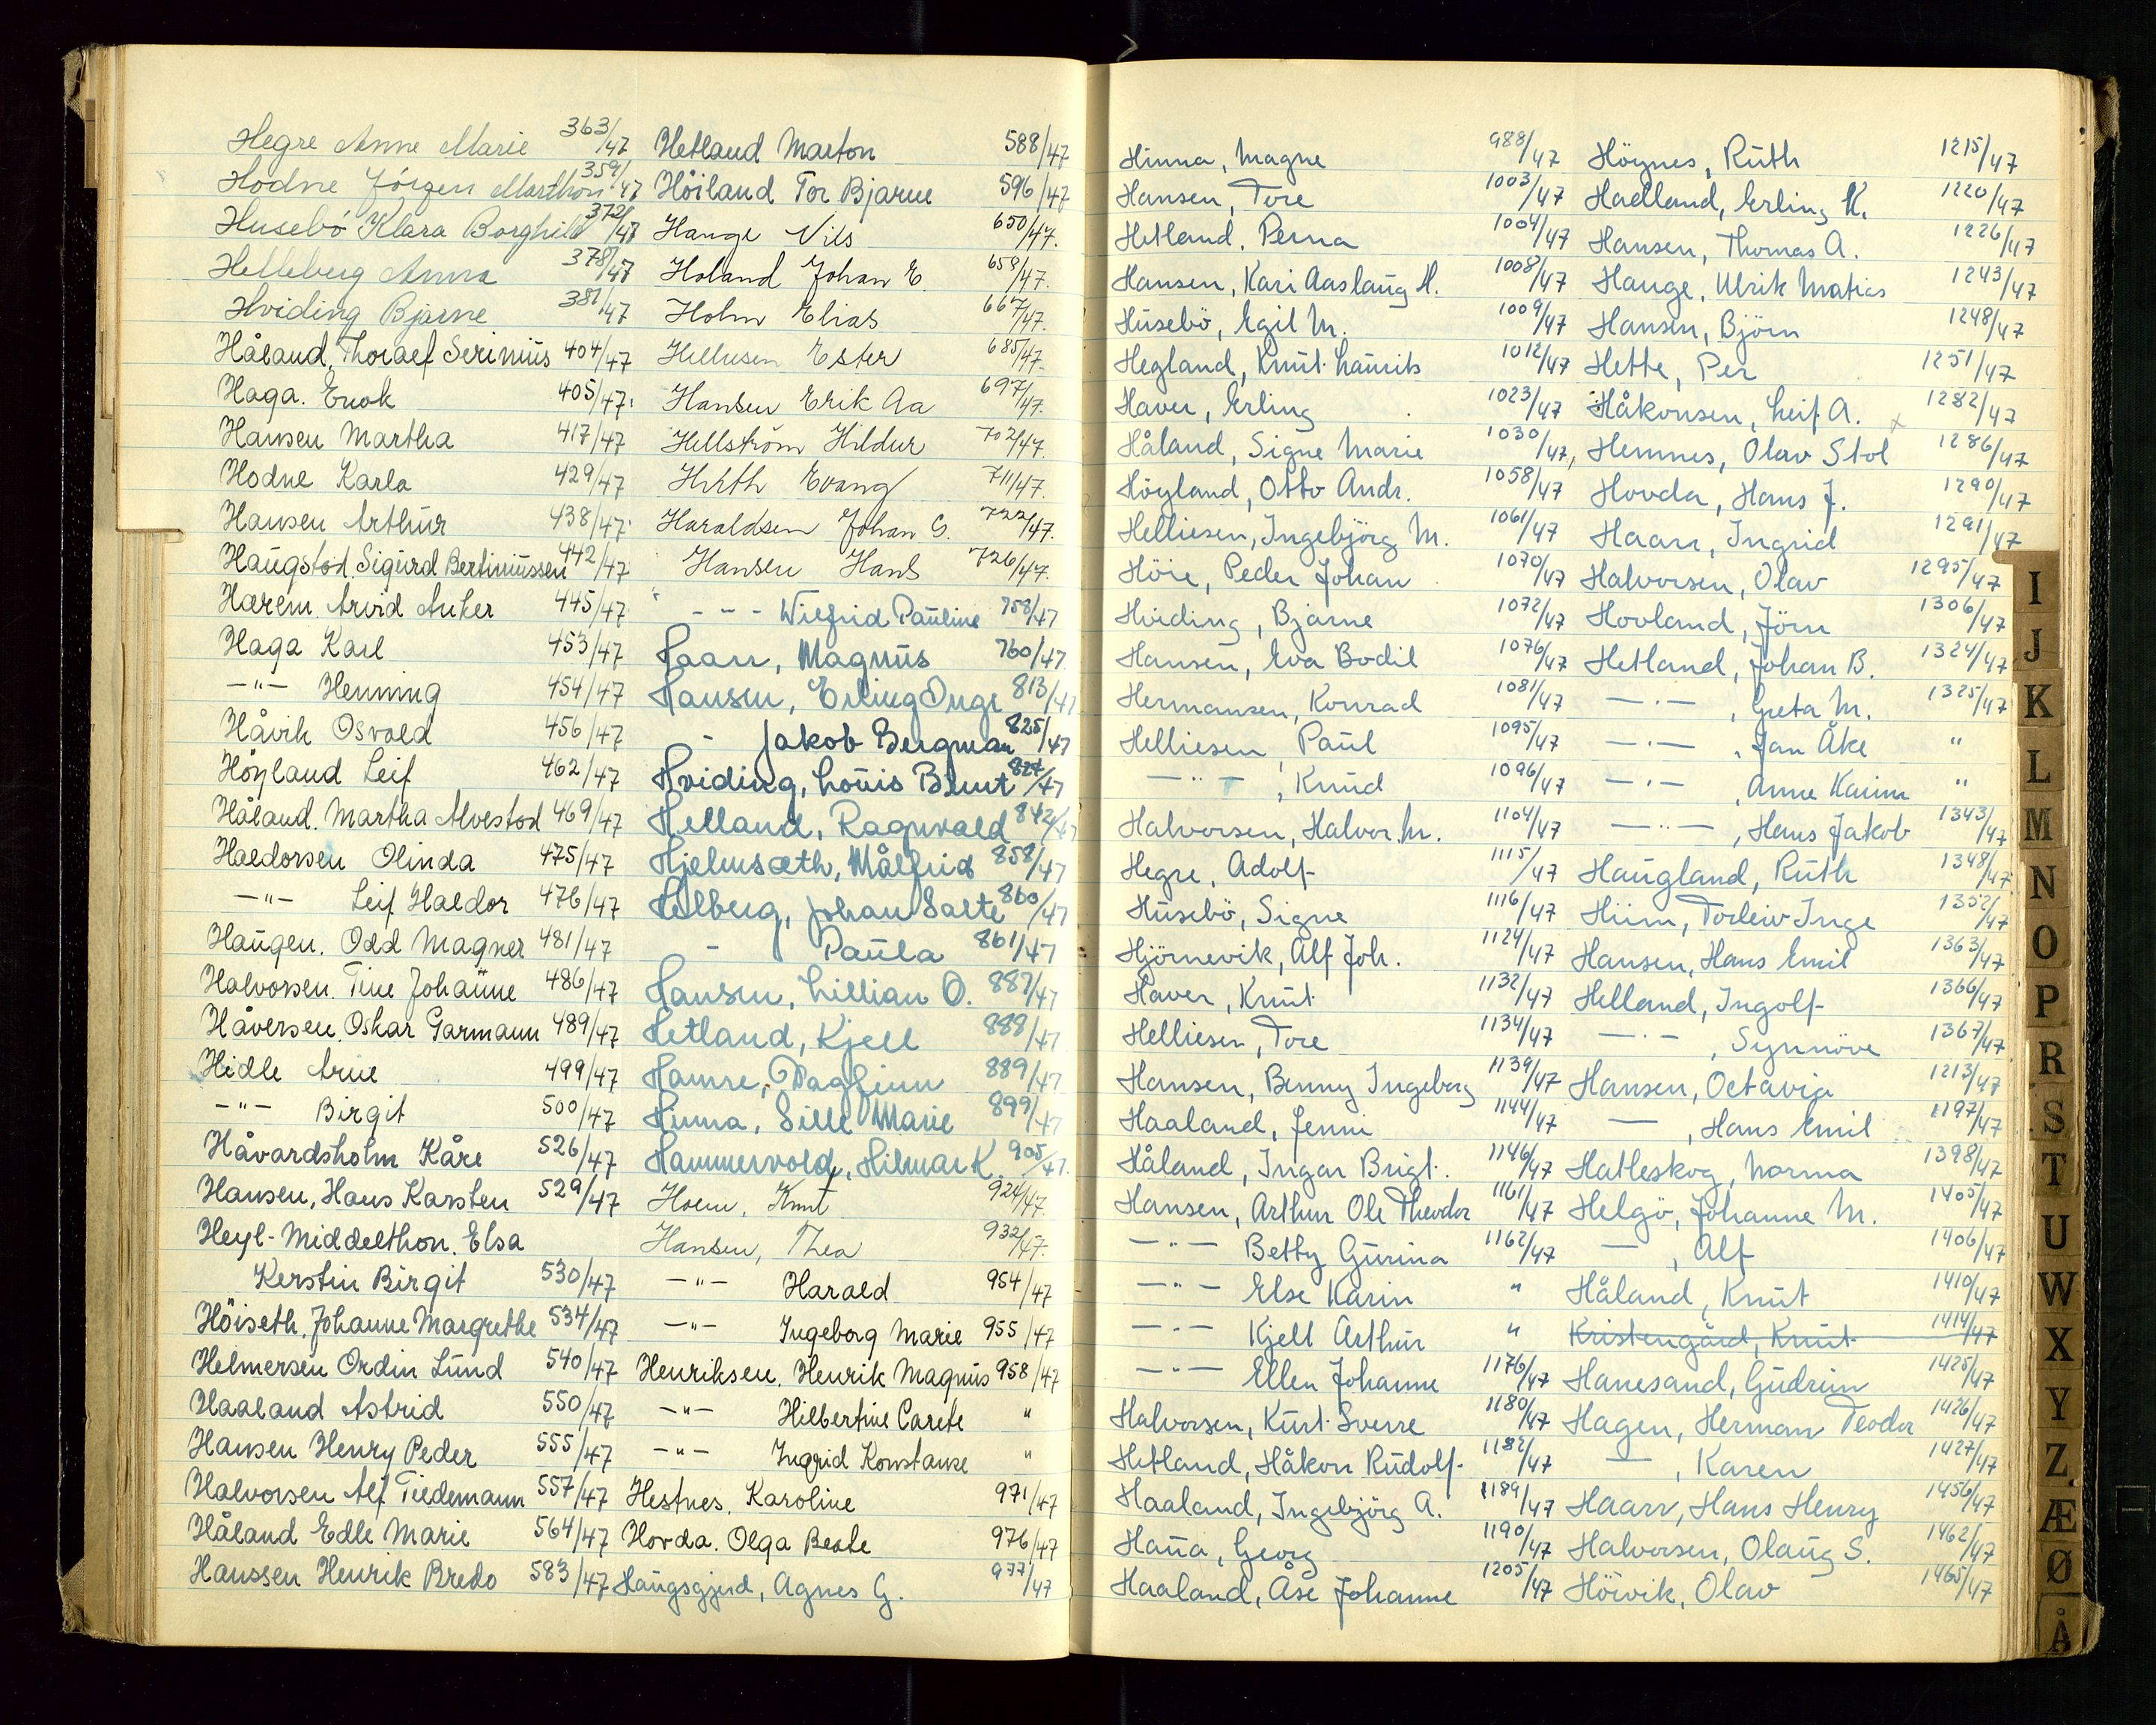 Hegre Anne Marie 363/47
Hodne Jörgen Marthon 359/47
Husebö Klara Borghild 372/47
Helleberg Anna 378/47
Hviding Bjarne 381/47
Håland, Thoralf Serinius 404/47
Haga. Enok 405/47
Hansen Martha 417/47
Hodne Karla 429/47
Hansen Arthur 438/47
Haugstad. Sigurd Bertiniussen 442/47
Hærem. Arvid Anker 445/47
Haga Karl 453/47
—"— Henning 454/47
Håvik Osvald 456/47
Höyland Leif 462/47
Håland. Martha Alvestad 469/47
Haldorsen Olinda 475/47
—"— Leif Haldor 476/47
Haugen. Odd Magner 481/47
Halvorsen. Tine Johanne 486/47
Håversen. Oskar Garmann 489/47
Hidle Arne 499/47
—"— Birgit 500/47
Håvardsholm Kåre 526/47
Hansen, Hans Karsten 529/47
Heyl-Middelthon. Elsa
Kerstin Birgit 530/47
Höiseth. Johanne Margrethe 534/47
Helmersen Ordin Lund 540/47
Haaland Astrid 550/47
Hansen Henry Peder 555/47
Halvorsen Alf Tiedemann 557/47
Håland Edle Marie 564/47
Hanssen Henrik Bredo 583/47
Hetland Marton 588/47
Höiland Tor Bjarne 596/47
Hauge Nils 650/47.
Holand Johan E. 659/47.
Holm Elias 667/47.
Hellesen Ester 685/47.
Hansen Erik Aa 697/47.
Hellström Hildur 702/47.
Hirth Evang 711/47.
Haraldsen Johan G. 722/47.
Hansen Hans 726/47.
- - - Wilfrid Pauline 758/47
Haarr, Magnus 760/47
Hansen, Erling Inge 813/47
- Jakob Bergman 825/47
Hviding, Louis Brunt 827/47
Helland, Ragnvald 842/47
Hjelmsæth, Målfrid 858/47
Helberg, Johan Salte 860/47
- Paula 861/47
Hansen, Lillian O. 887/47
Hetland, Kjell 888/47
Hamre, Dagfinn 889/47
Hinna, Sille Marie 899/47
Hammervold, Hilmar K. 905/47.
Hoem, Knut 924/47.
Hansen, Thea 932/47.
—"— Harald 954/47
—"— Ingeborg Marie 955/47
Henriksen. Henrik Magnus 958/47
—"— Hilbertine Carete "
—"— Ingrid Konstanse "
Hestnes. Karoline 971/47
Hovda. Olga Beate 976/47
Haugsgjerd, Agnes G. 977/47
Hinna, Magne 988/47
Hansen, Tore 1003/47
Hetland, Perna 1004/47
Hansen, Kari Aaslaug H. 1008/47
Husebö, Egil M. 1009/47
Hegland, Knut Laurits 1012/47
Haver, Erling 1023/47
Håland, Signe Marie 1030/47,
Höyland, Otto Andr. 1058/47
Helliesen, Ingebjörg M. 1061/47
Höie, Peder Johan 1070/47
Hviding, Bjarne 1072/47
Hansen, Eva Bodil 1076/47
Hermansen, Konrad 1081/47
Helliesen, Paul 1095/47
—"—, Knud 1096/47
Halvorsen, Halvor M. 1104/47
Hegre, Adolf 1115/47
Husebö, Signe 1116/47
Hjörnevik, Alf Joh. 1124/47
Haver, Knut 1132/47
Helliesen, Tore 1134/47
Hansen, Benny Ingeborg 1139/47
Haaland, Jenni 1144/47
Håland, Ingar Brigt. 1146/47
Hansen, Arthur Ole Theodor 1161/47
—"— Betty Gurina 1162/47
—"— Else Karin "
—"— Kjell Arthur "
—"— Ellen Johanne 1176/47
Halvorsen, Kurt Sverre 1180/47
Hetland, Håkon Rudolf 1182/47
Haaland, Ingebjörg A. 1189/47
Haua, Georg 1190/47
Haaland, Åse Johanne 1205/47
Höynes, Ruth 1215/47
Hadland, Erling K. 1220/47
Hansen, Thomas A. 1226/47
Hauge, Ulrik Matias 1243/47
Hansen, Björn 1248/47
Hette, Per 1251/47
Håkonsen, Leif A. x 1282/47
Hemnes, Olav Stol 1286/47
Hovda, Hans J. 1290/47
Haarr, Ingrid 1291/47
Halvorsen, Olav 1295/47
Hovland, Jörn 1306/47
Hetland, Johan B. 1324/47
—"—, Greta M. 1325/47
—"—, Jan Åke "
—"—, Anne Karine "
—"—, Hans Jakob 1343/47
Haugland, Ruth 1348/47
Hiim, Torleiv Inge 1352/47
Hansen, Hans Emil 1363/47
Helland, Ingolf 1366/47
—"—, Synnöve 1367/47
Hansen, Octavia 1213/47
—, Hans Emil 1197/47
Hatleskog, Norma 1398/47
Helgö, Johanne M. 1405/47
—, Alf 1406/47
Håland, Knut 1410/47
Kristengård, Knut 1414/47
Hanesand, Gudrun 1425/47
Hagen, Herman Teodor 1426/47
—, Karen 1427/47
Haarr, Hans Henry 1456/47
Halvorsen, Olaug S. 1462/47
Höivik, Olav 1465/47
I
J
K
L
M
N
O
P
R
S
T
U
W
X
Y
Z.
Æ
Ø
Å